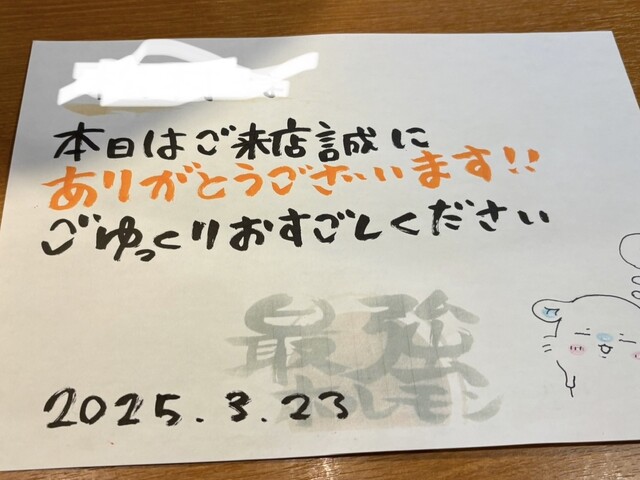 本日はご来店誠に
ありがとうございます!!
ごゆっくりおすごしください
最強
ホルモン
2025.3.23